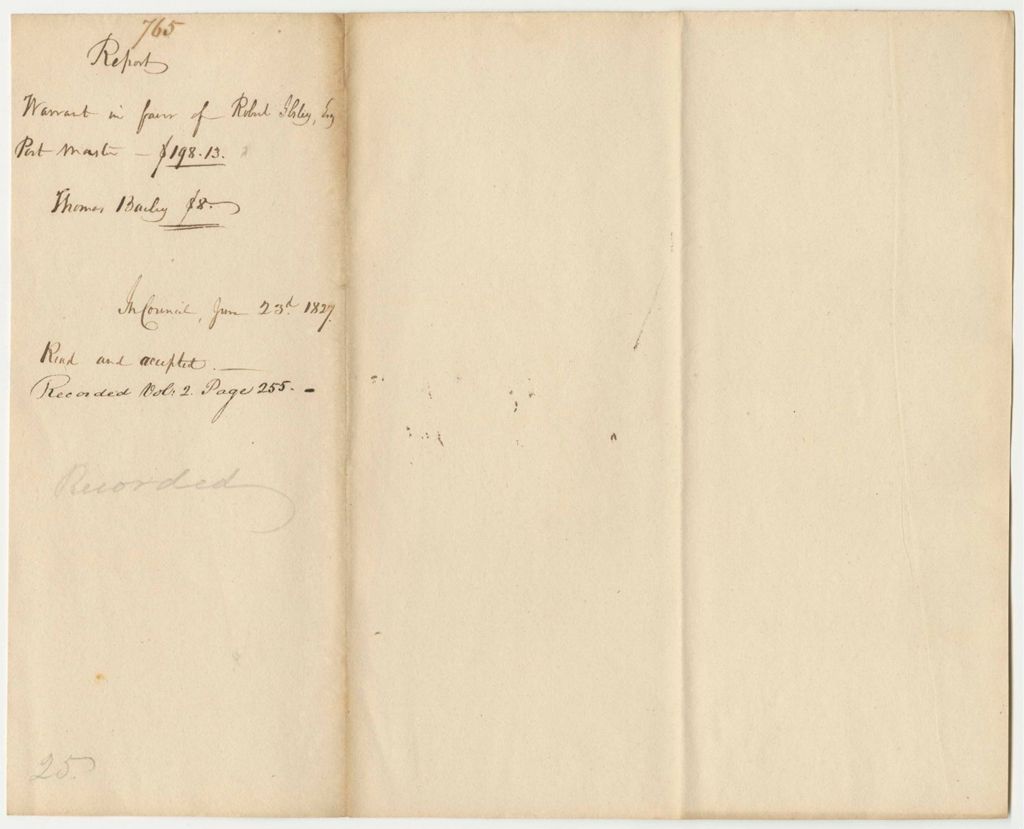 765
Report
Warrant in favor of Robert Ilsley, Esq
Post Master — $198.13.
Thomas Bailey $8—
In Council, June 23d. 1827.
Read and accepted. —
Recorded Vol: 2. Page 255. –
Recorded
25.